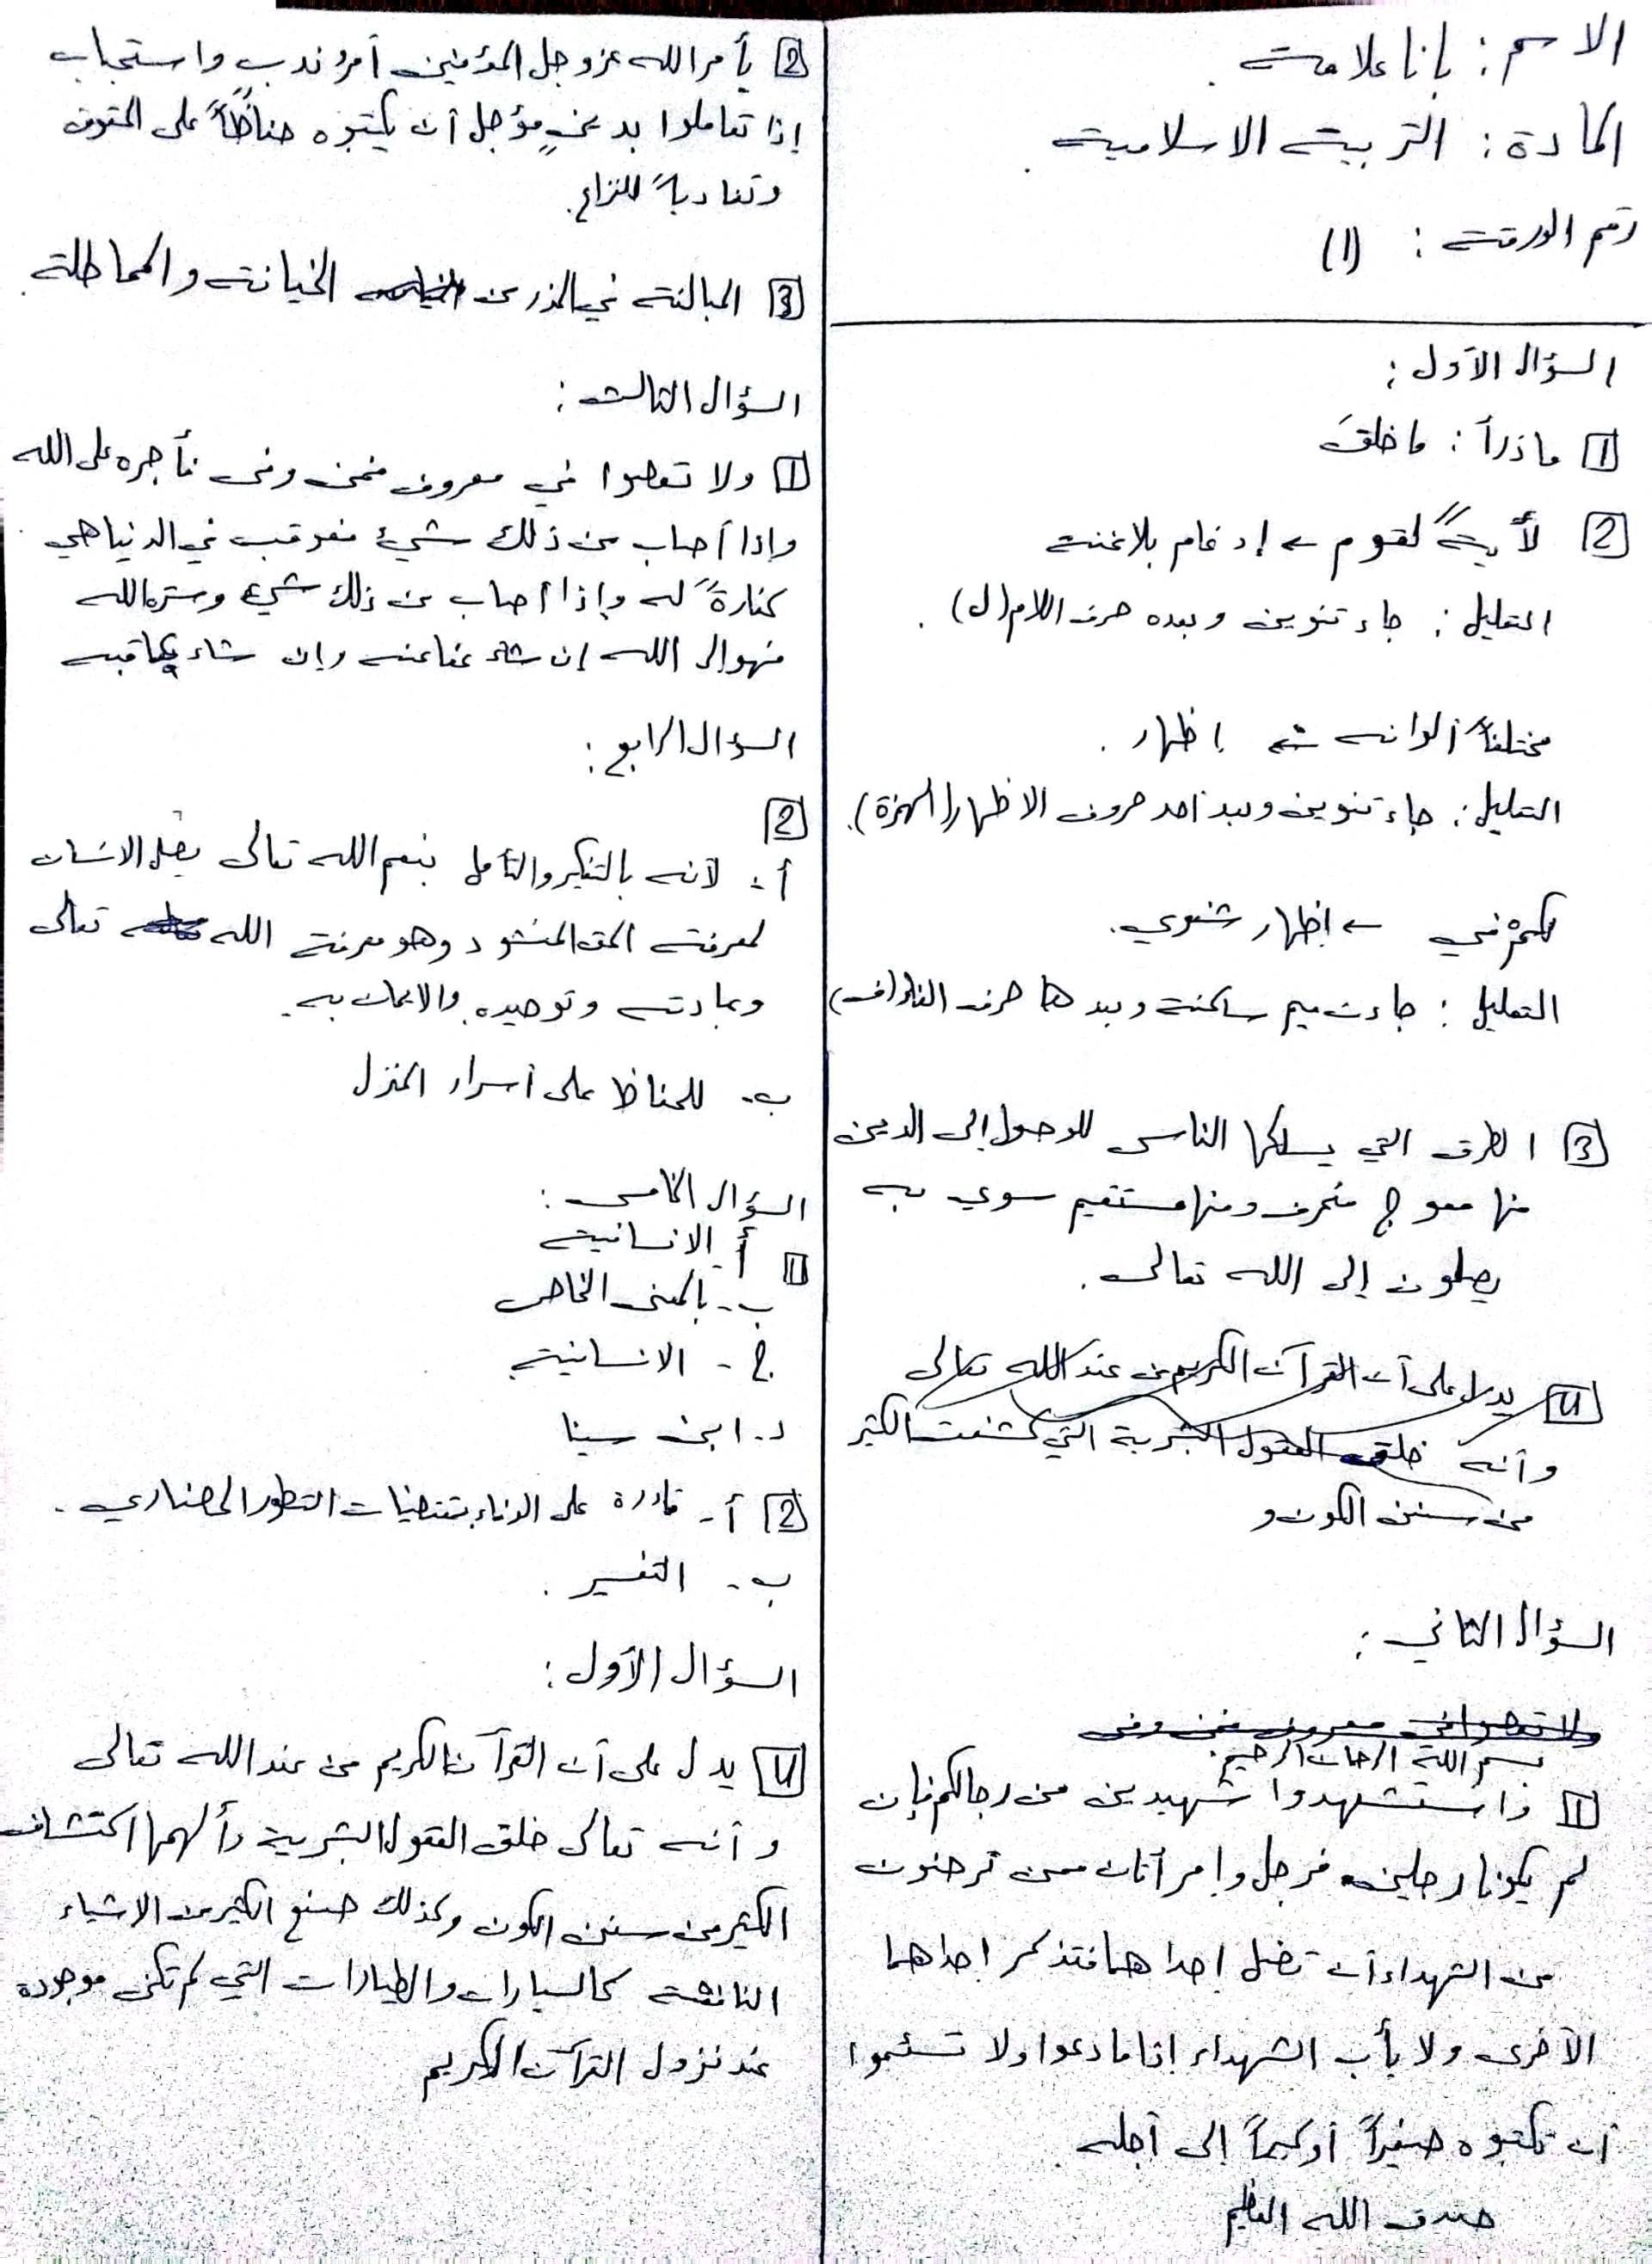 الاسم: بانا علامة.
المادة: التربية الاسلامية.
رقم الورقة: (1)
السؤال الأول:
1 ماذرأ: ما خلقَ
2 لأيةً لقوم ← إدغام بلا غنة
التعليل: جاء تنوين وبعده حرف اللام (ل).
مختلفاً ألوانه ← إظهار.
التعليل: جاء تنوين وبعد أحد حروف الاظهار (الهمزة).
لكمْ في ← إظهار شفوي.
التعليل: جاءت ميم ساكنة وبعدها حرف الفاء (ف)
3 الطرق التي يسلكها الناس للوصول إلى الدين
منها معوج منحرف ومنها مستقيم سوي به
يصلون إلى الله تعالى.
4 يدل على أن القرآن الكريم من عند الله تعالى
وأنه خلق العقول البشرية التي كشفت الكثير
من سنن الكون و
السؤال الثاني:
ولا تعصوا في معروف فمن وفى
بسم الله الرحمن الرحيم.
1 واستشهدوا شهيدين من رجالكم فإن
لم يكونا رجلين فرجل وإمرأتان ممن ترضون
من الشهداء أن تضل إحداهما فتذكر إحداهما
الأخرى ولا يأب الشهداء إذا ما دعوا ولا تسئموا
أن تكتبوه صغيراً أو كبيراً إلى أجله
صدق الله العظيم
2 يأمر الله عز وجل المؤمنين أمرُ ندبٍ واستحباب
إذا تعاملوا بدينٍ مؤجل أن يكتبوه حفاظاً على الحقوق
وتفادياً للنزاع.
3 المبالغة في الحذر من الخيانة والمماطلة.
السؤال الثالث:
1 ولا تعصوا في معروف فمن وفى فأجره على الله
وإذا أصاب من ذلك شيء فعوقب في الدنيا هي
كفارةً له وإذا أصاب من ذلك شيء وستره الله
فهو إلى الله إن شاء عفا عنه وإن شاء يعاقبه
السؤال الرابع:
2
أ- لأنه بالتفكير والتأمل بنعم الله تعالى يصل الانسان
لمعرفة الحق المنشود وهو معرفة الله تعالى
وعبادته وتوحيده والايمان به.
ب- للحفاظ على أسرار المنزل
السؤال الخامس:
1 أ- الانسانية
ب- بالمعنى الخاص
ج- الانسانية
د- ابن سينا
2 أ- قادرة على الوفاء بمقتضيات التطور الحضاري.
ب- التفسير.
السؤال الأول:
4 يدل على أن القرآن الكريم من عند الله تعالى
وأنه تعالى خلق العقول البشرية وألهمها اكتشاف
الكثير من سنن الكون وكذلك صنع الكثير من الاشياء
النافعة كالسيارات والطيارات التي لم تكن موجودة
عند نزول القرآن الكريم